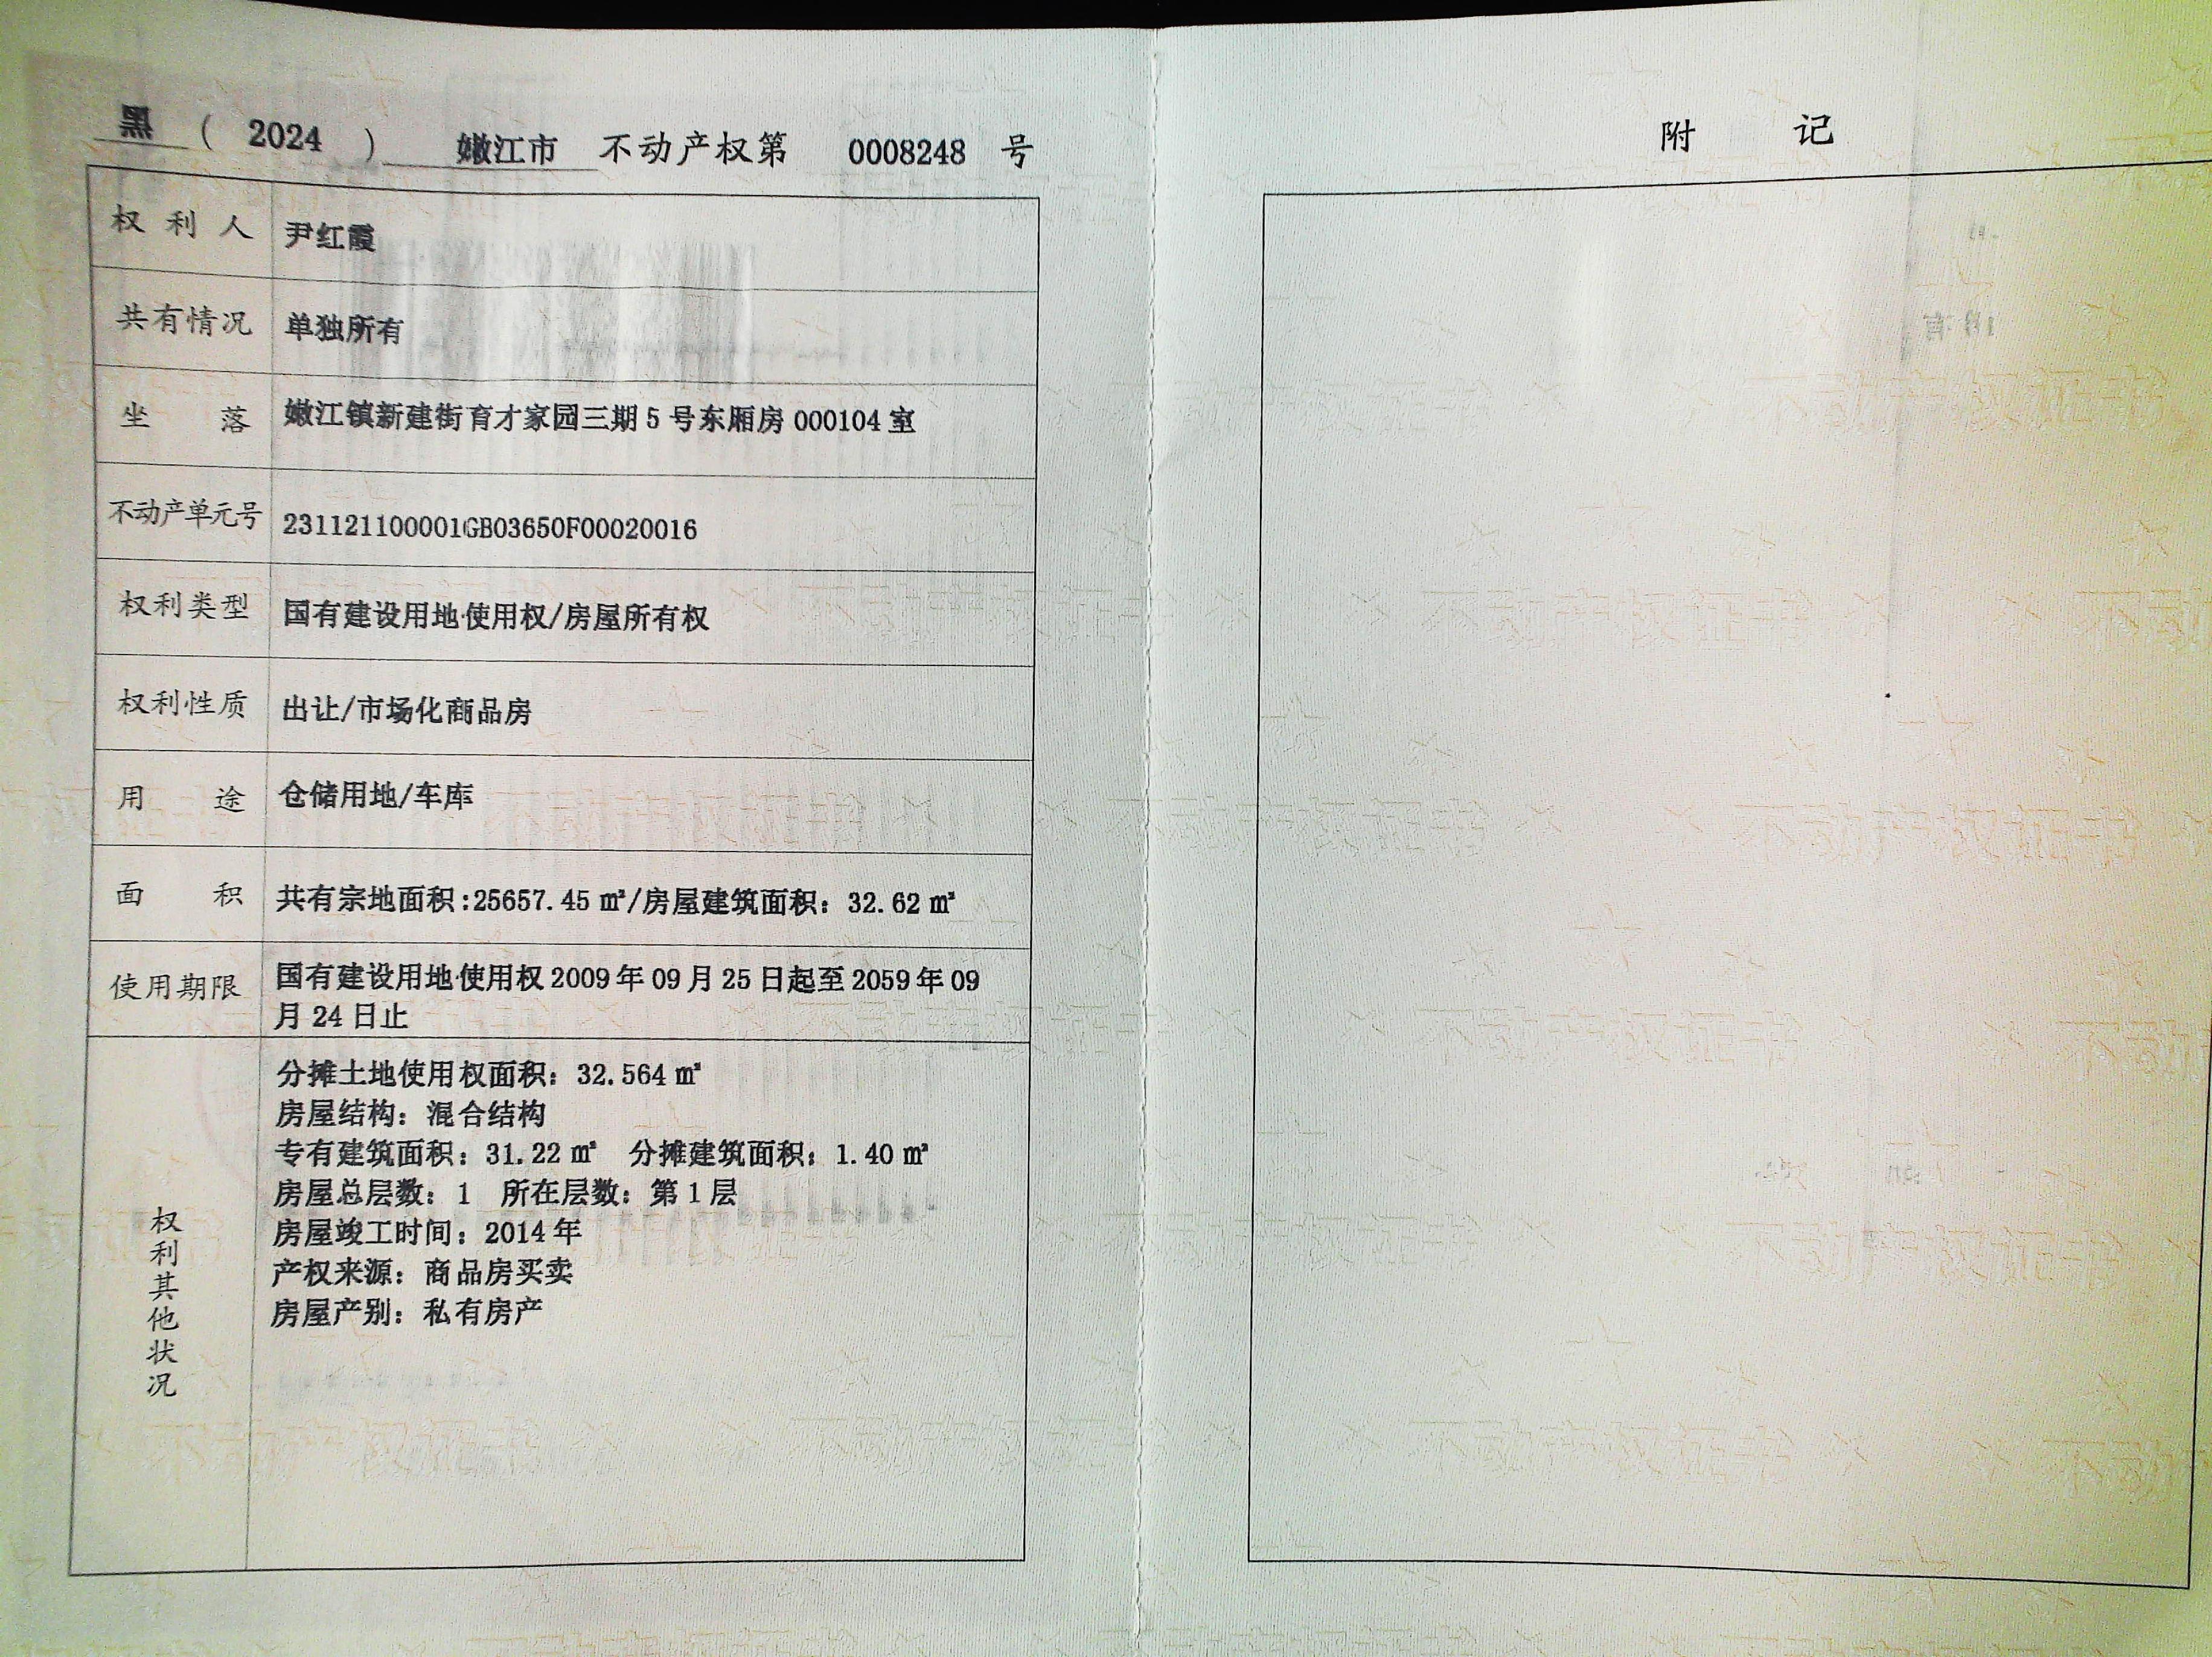 黑 ( 2024 ) 嫩江市 不动产权第 0008248 号
权利人 尹红霞
共有情况 单独所有
坐落 嫩江镇新建街育才家园三期5号东厢房000104室
不动产单元号 231121100001GB03650F00020016
权利类型 国有建设用地使用权/房屋所有权
权利性质 出让/市场化商品房
用途 仓储用地/车库
面积 共有宗地面积:25657.45㎡/房屋建筑面积：32.62㎡
使用期限 国有建设用地使用权2009年09月25日起至2059年09
月24日止
权利其他状况
分摊土地使用权面积：32.564㎡
房屋结构：混合结构
专有建筑面积：31.22㎡ 分摊建筑面积：1.40㎡
房屋总层数：1 所在层数：第1层
房屋竣工时间：2014年
产权来源：商品房买卖
房屋产别：私有房产
附记